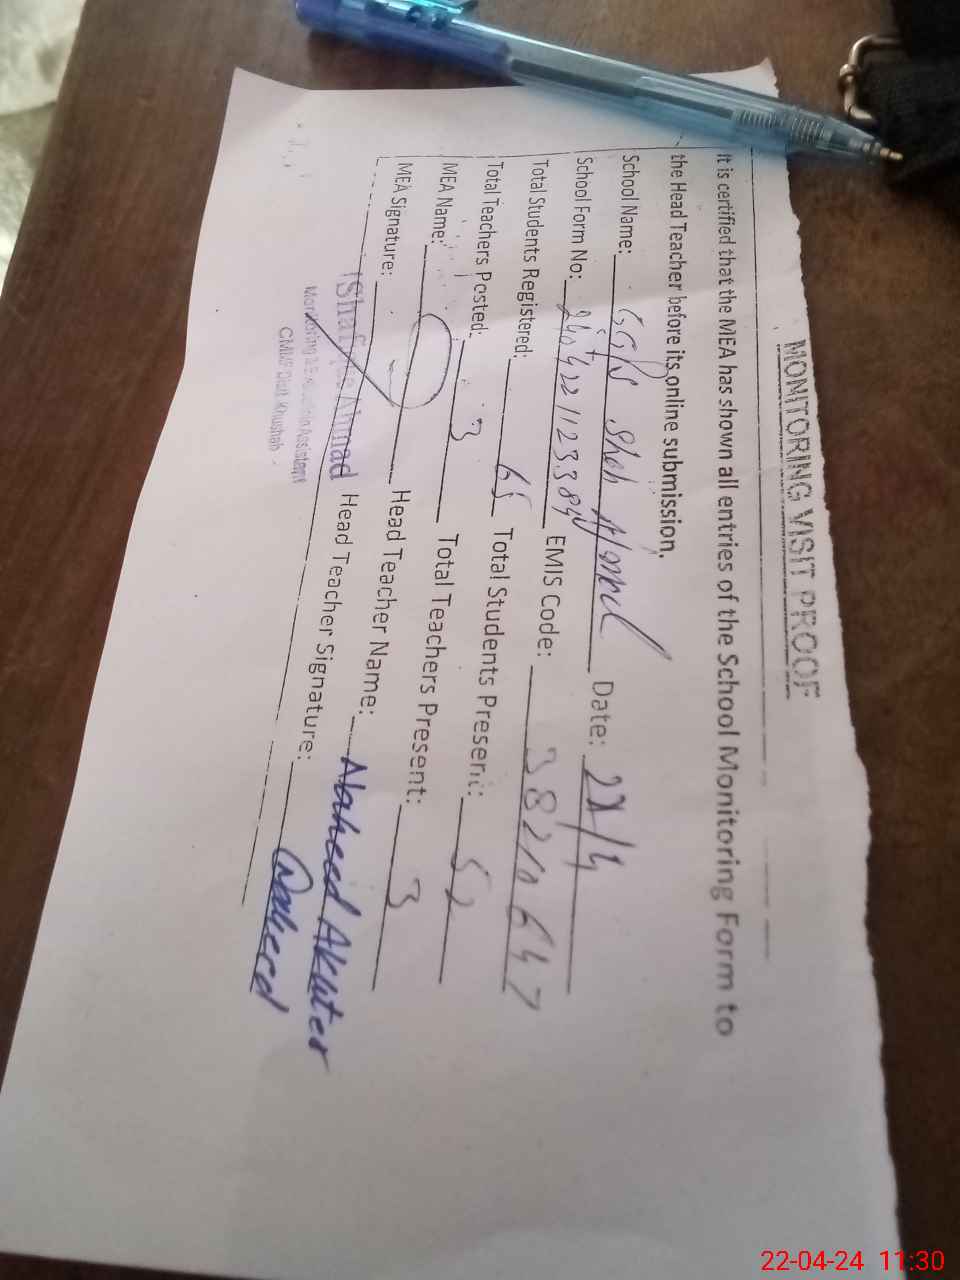 MONITORING VISIT PROOF
It is certified that the MEA has shown all entries of the School Monitoring Form to
the Head Teacher before its online submission.
School Name: Date: 22/4
School Form No: EMIS Code: 38210647
Total Students Registered: 65 Total Students Present: 52
Total Teachers Posted: 3 Total Teachers Present: 3
MEA Name: Head Teacher Name: Naheed Akhter
MEA Signature: Head Teacher Signature: Naheed
Ahmad
Monitoring & Evaluation Assistant
Khushab
22-04-24 11:30